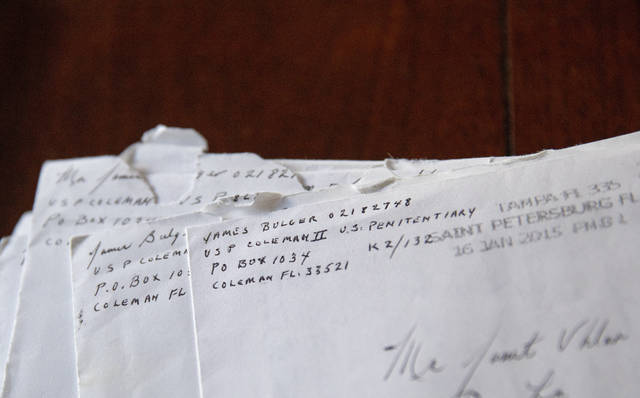 021821
USP COLEMAN US P
PO BOX 1034
CO
James Bulg
USP COLEM
P.O. BOX 10
COLEMAN FL
JAMES BULGER 02182748
USP COLEMAN II U.S. PENITENTIARY
PO BOX 1034 K2/132
COLEMAN FL. 33521
TAMPA FL 335
SAINT PETERSBURG FL
16 JAN 2015 PM 8 L
Ms Janet Uhlar